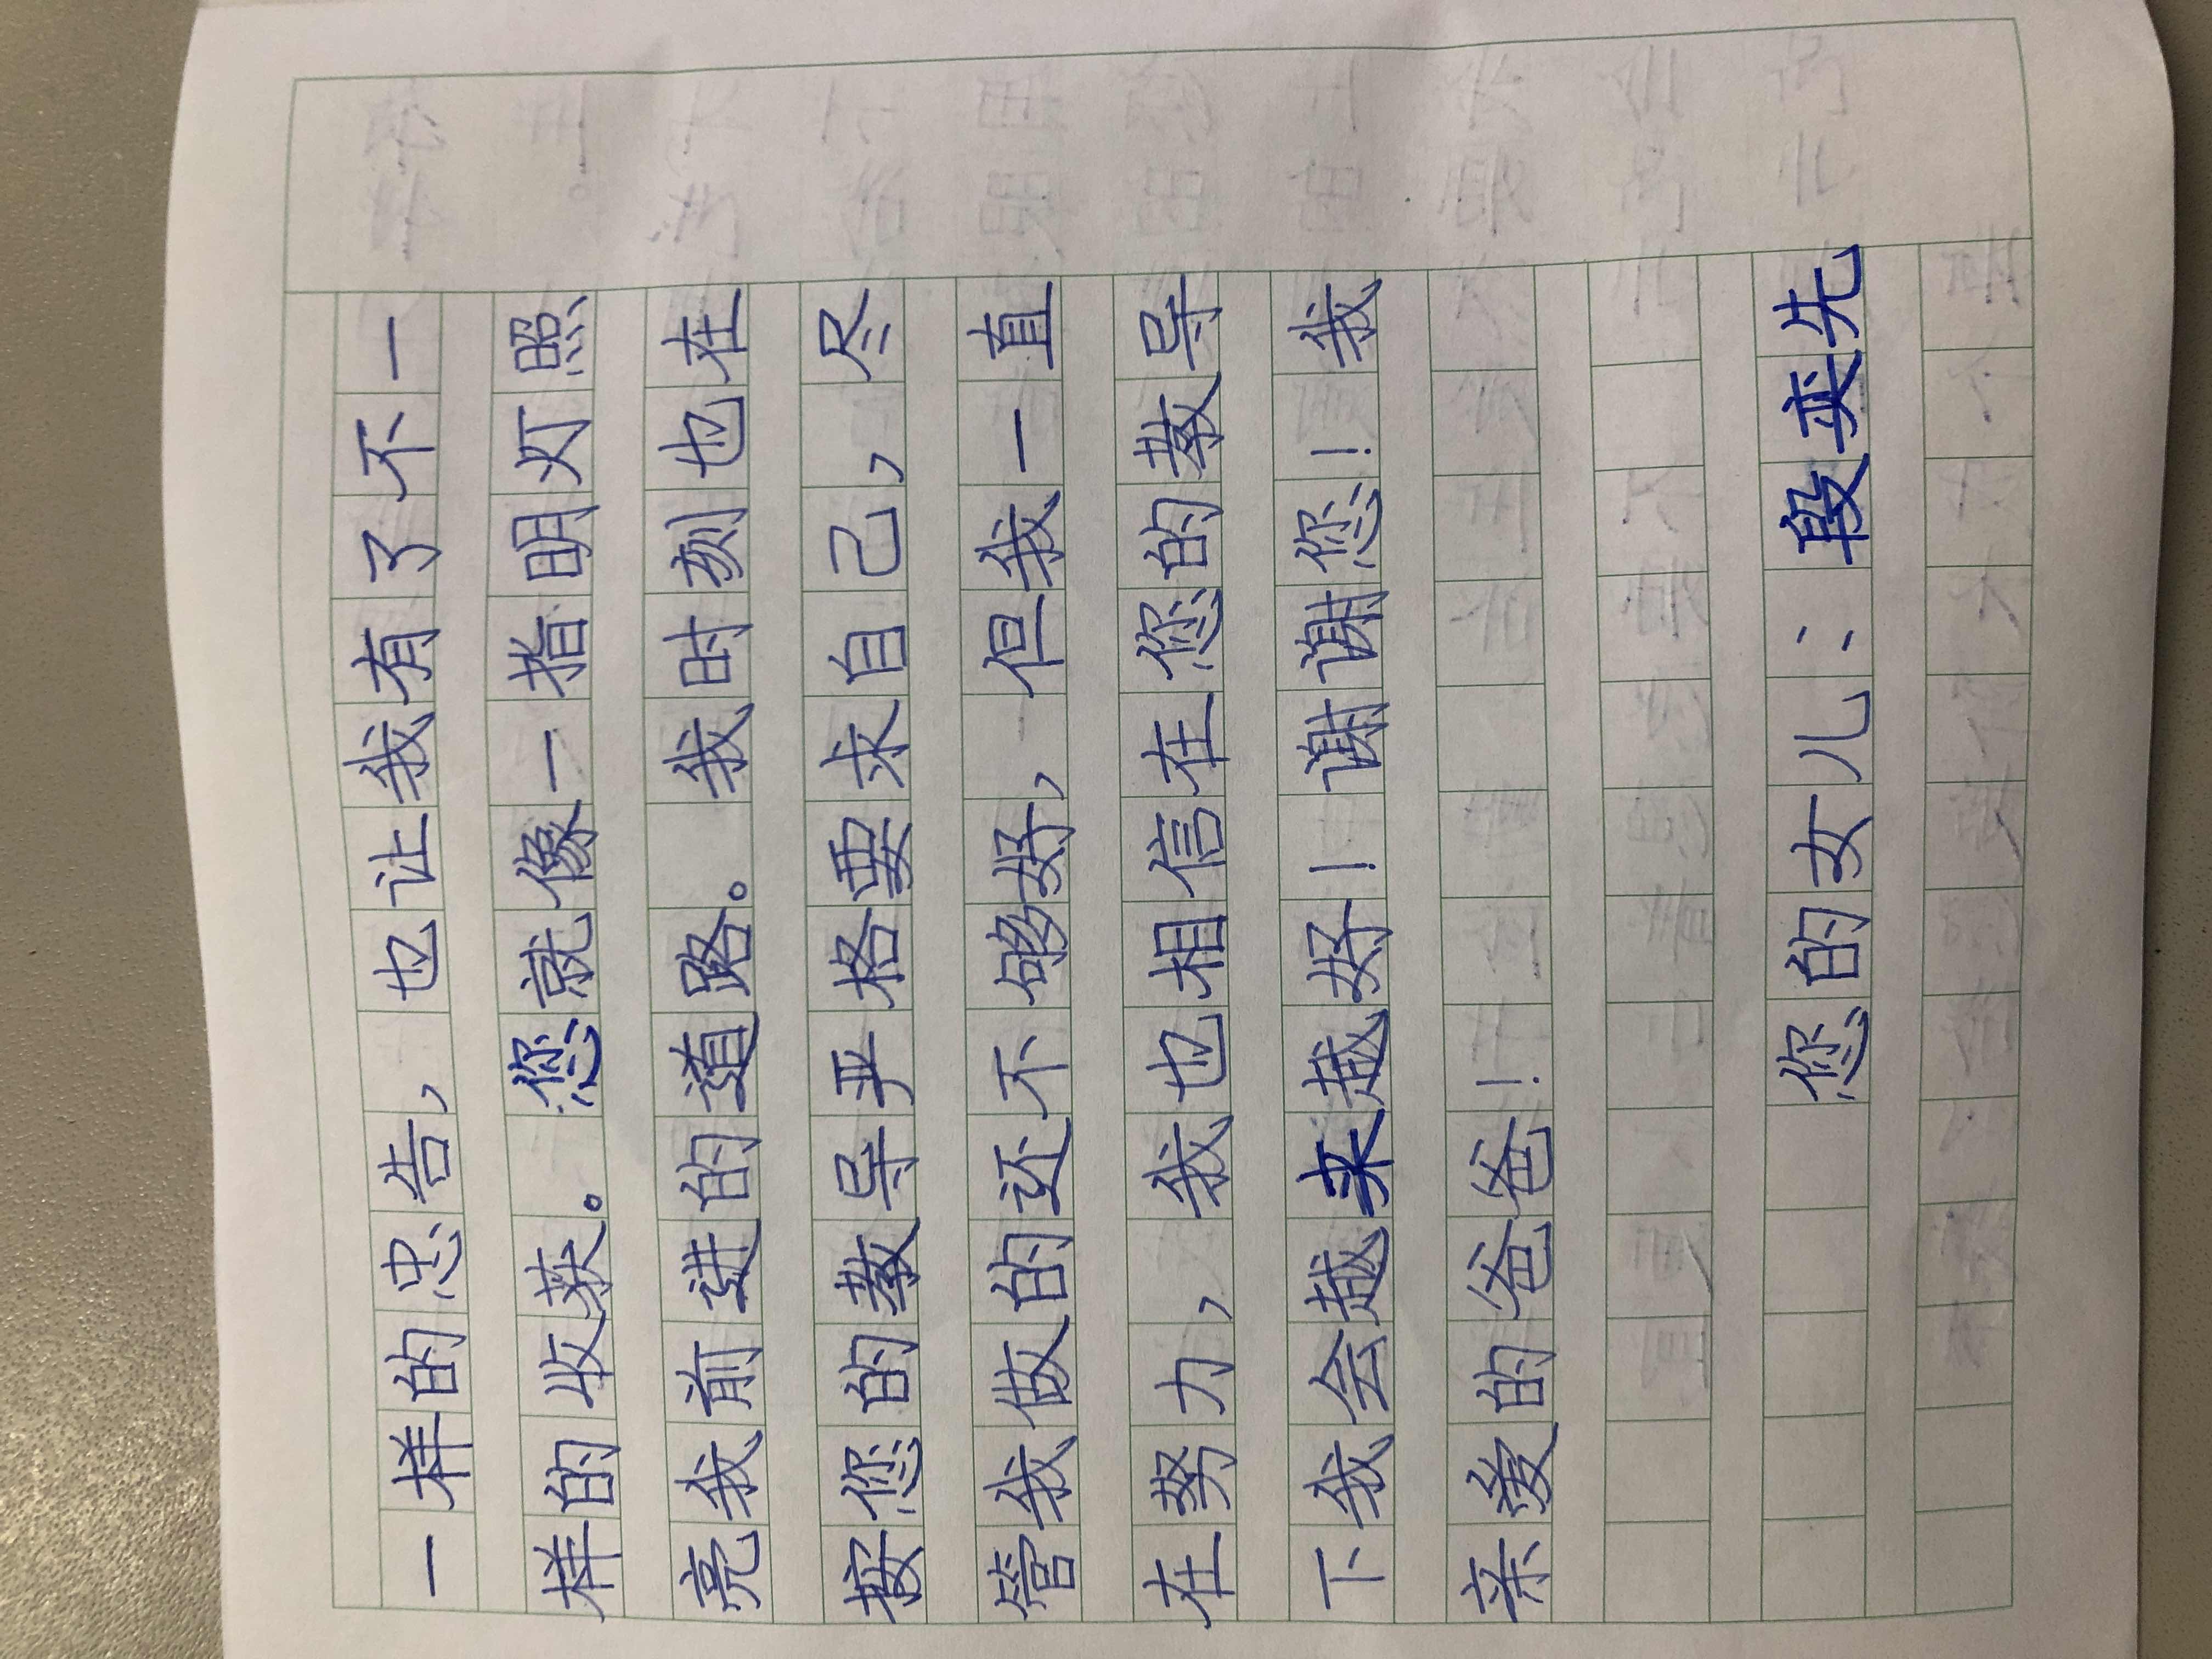 一样的忠告，也让我有了不一
样的收获。您就像一指明灯照
亮我前进的道路。我时刻也在
按您的教导严格要求自己，尽
管我做的还不够好，但我一直
在努力，我也相信在您的教导
下我会越来越好！谢谢您！我
亲爱的爸爸！
您的女儿：段奕先